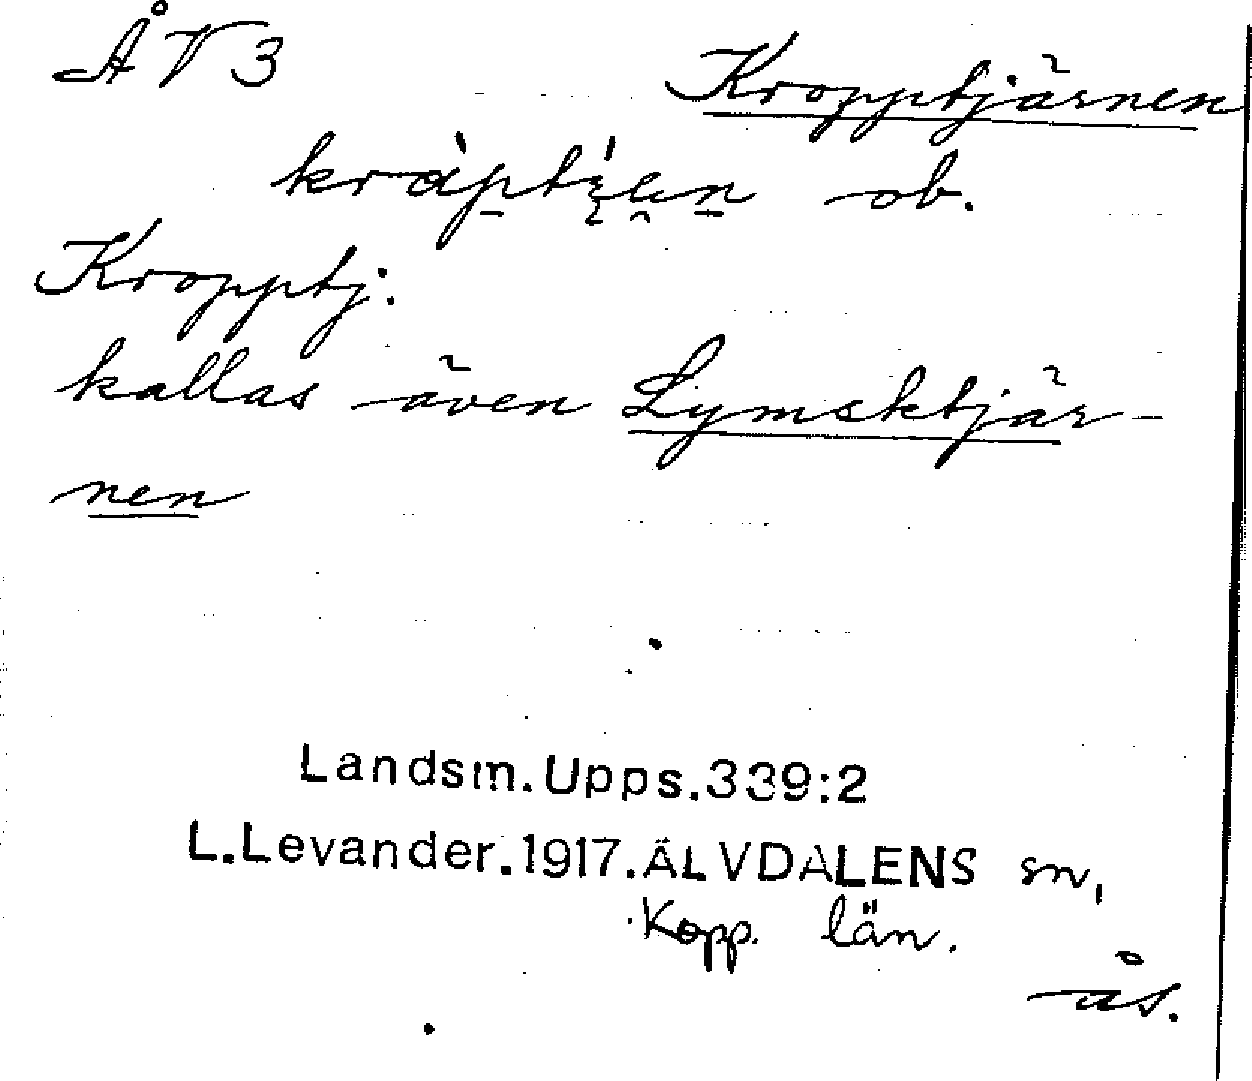 ÅV3 Kropptjärnen
ob.
Kropptj.
kallas även Lymsktjär-
nen
Landsm.Upps.339:2
L.Levander.1917.ÄLVDALENS sn,
Kopp. län.
ås.